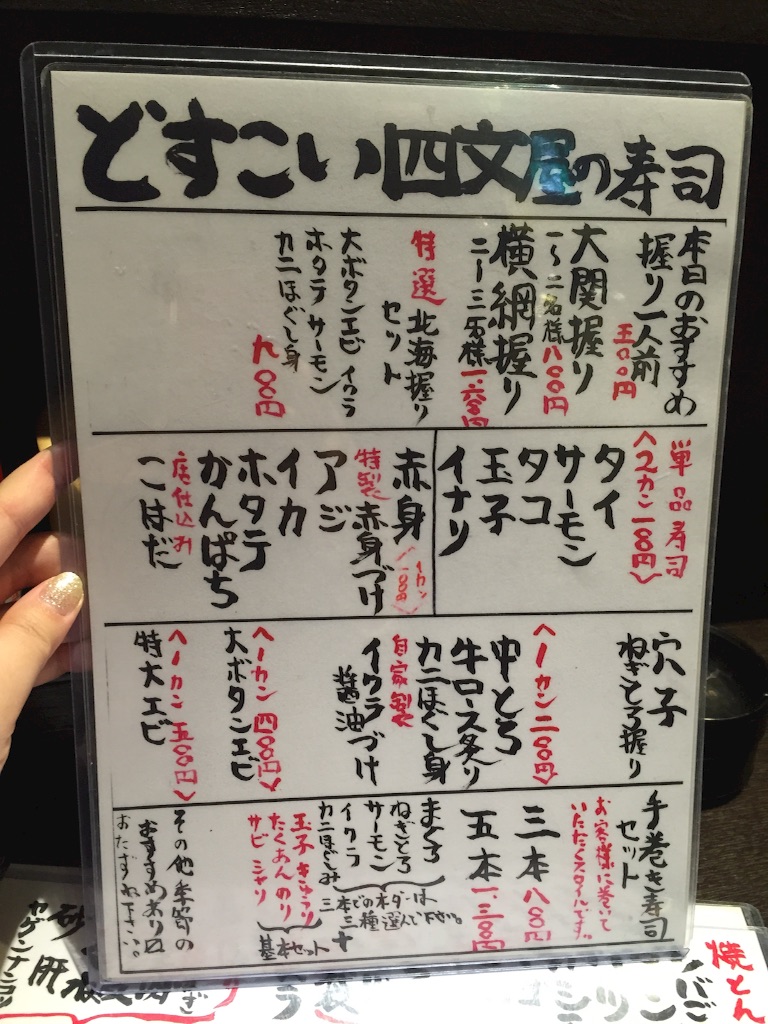 どすこい四文屋の寿司
本日のおすすめ
握り一人前
五〇〇円
大関握り
一〜二名様 八〇〇円
横綱握り
二〜三名様 一.六〇〇円
特選 北海握り
セット
大ボタンエビ イクラ
ホタテ サーモン
カニほぐし身
九〇〇円
単品寿司
〈2カン 一〇〇円〉
タイ
サーモン
タコ
玉子
イナリ
赤身
〈一カン 一〇〇円〉
特製 赤身づけ
アジ
イカ
ホタテ
かんぱち
店仕込み
こはだ
穴子
ねぎとろ握り
〈一カン 二〇〇円〉
中とろ
牛ロース炙り
カニほぐし身
自家製
イクラ
醤油づけ
〈一カン 四〇〇円〉
大ボタンエビ
〈一カン 五〇〇円〉
特大エビ
手巻き寿司
セット
お客様に巻いて
いただくスタイルです。
三本 八〇〇円
五本 一.三〇〇円
まぐろ
ねぎとろ
サーモン
イクラ
カニほぐしみ
三本どの本ダーは
三種選んで下さい。
十
玉子 きゅうり
たくあん のり
サビ シャリ
基本セット
その他季節の
おすすめあり〼
おたずね下さい。
焼とん